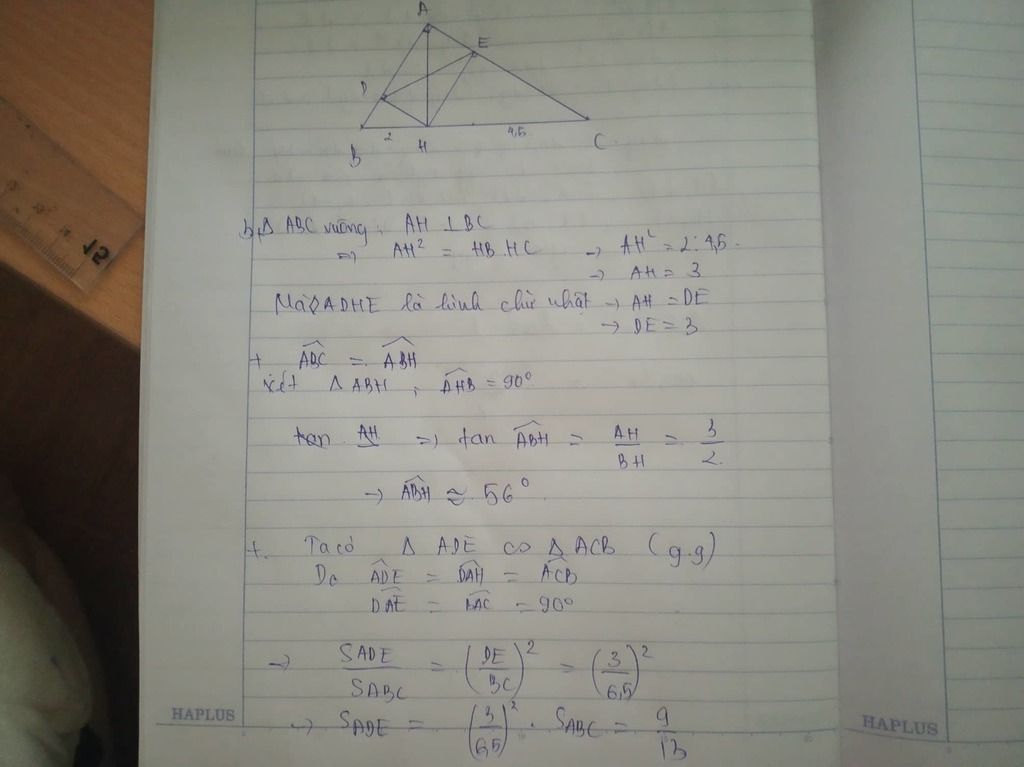 12
A
E
D
2
4,5
B
H
C
b, Δ ABC vuông, AH ⊥ BC
=> AH² = HB.HC -> AH² = 2.4,5.
-> AH = 3
Mà ADHE là hình chữ nhật -> AH = DE
-> DE = 3
+ ABC = ABH
xét Δ ABH, AHB = 90°
tan AH => tan ABH = AH/BH = 3/2
-> ABH ≈ 56°
+. Ta có Δ ADE ∽ Δ ACB (g.g)
Do ADE = DAH = ACB
DAE = BAC = 90°
-> SADE/SABC = (DE/BC)² = (3/6,5)²
-> SADE = (3/6,5)² . SABC = 9/13
HAPLUS
HAPLUS